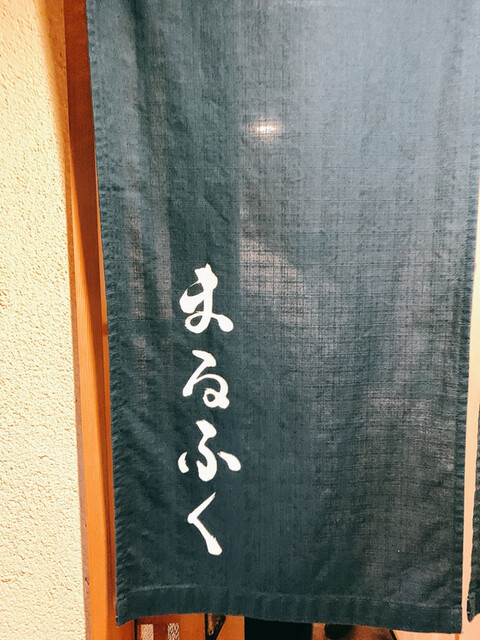 まるふく